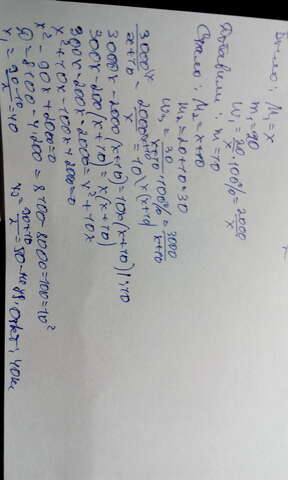 Было: M₁ = x
m₁ = 20
W₁ = 20/x · 100% = 2000/x
Добавили: m = 10
Стало: M₂ = x+10
m₂ = 20+10 = 30
W₂ = 30/x+10 · 100% = 3000/x+10
3000/x+10 \x - 2000/x \x+10 = 10 \x(x+10)
3000x - 2000(x+10) = 10x(x+10) | :10
300x - 200(x+10) = x(x+10)
300x - 200x - 2000 = x² + 10x
x² + 10x - 100x + 2000 = 0
x² - 90x + 2000 = 0
D = 8100 - 4·2000 = 8100 - 8000 = 100 = 10²
x₁ = 90-10/2 = 40 x₂ = 90+10/2 = 50